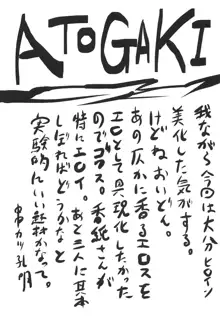 ATOGAKI
我ながら今回は大分ヒロイン
美化した気がする。
けどねおいどん。
あの仄かに香るエロスを
エロとして具現化したかった
のでゴワス。香紙さんが
特にエロイ。あと三人に其本
しばればどうかなと
実験的にいい題材かなって。
串カツ孔明